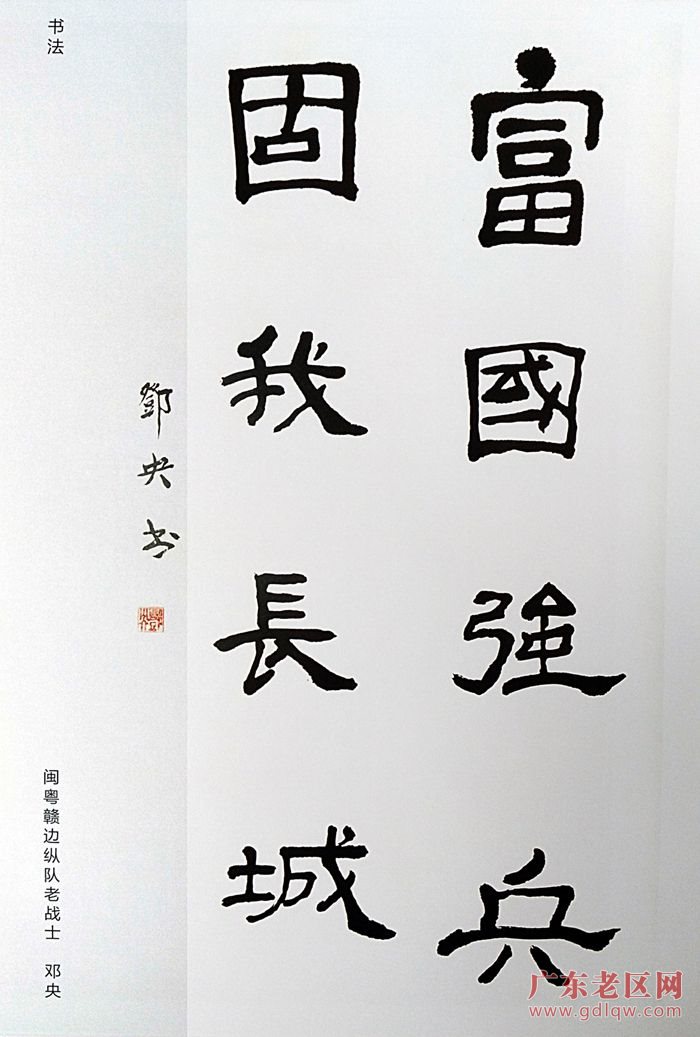 富國強兵
固我長城
鄧央书
书法
闽粤赣边纵队老战士 邓央
广东老区网
www.gdlqw.com